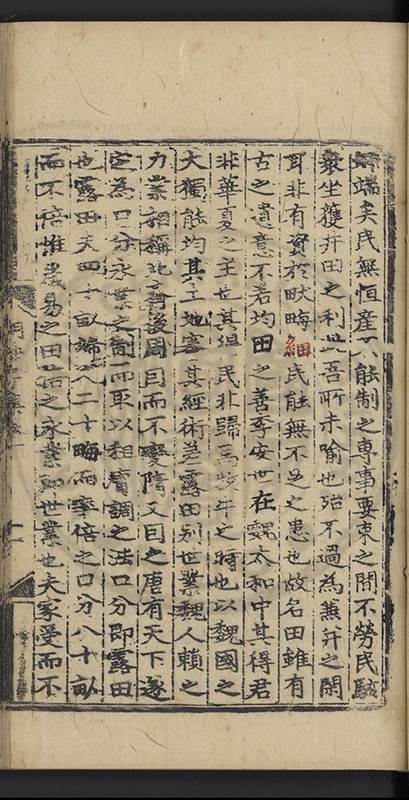 端矣民無恒産不能制之專事要束之間不勞民駭
衆坐獲井田之利此吾所未喻也殆不過為兼并之閑
耳非有資於畎畮細民能無不足之患也故名田雖有
古之遺意不若均田之善李安世在魏太和中其得君
非華夏之主世其退民非歸馬放牛之時也以魏國之
大獨能均其土地審其經術差露田别世業魏人賴之
力業相稱北齊後周因而不變隋又因之唐有天下遂
定為口分永業之制而取以租庸調之法口分即露田
也露田夫四十畝婦人二十畮而率倍之口分八十畝
而不倍惟歲易之田倍之永業即世業也夫家受而不